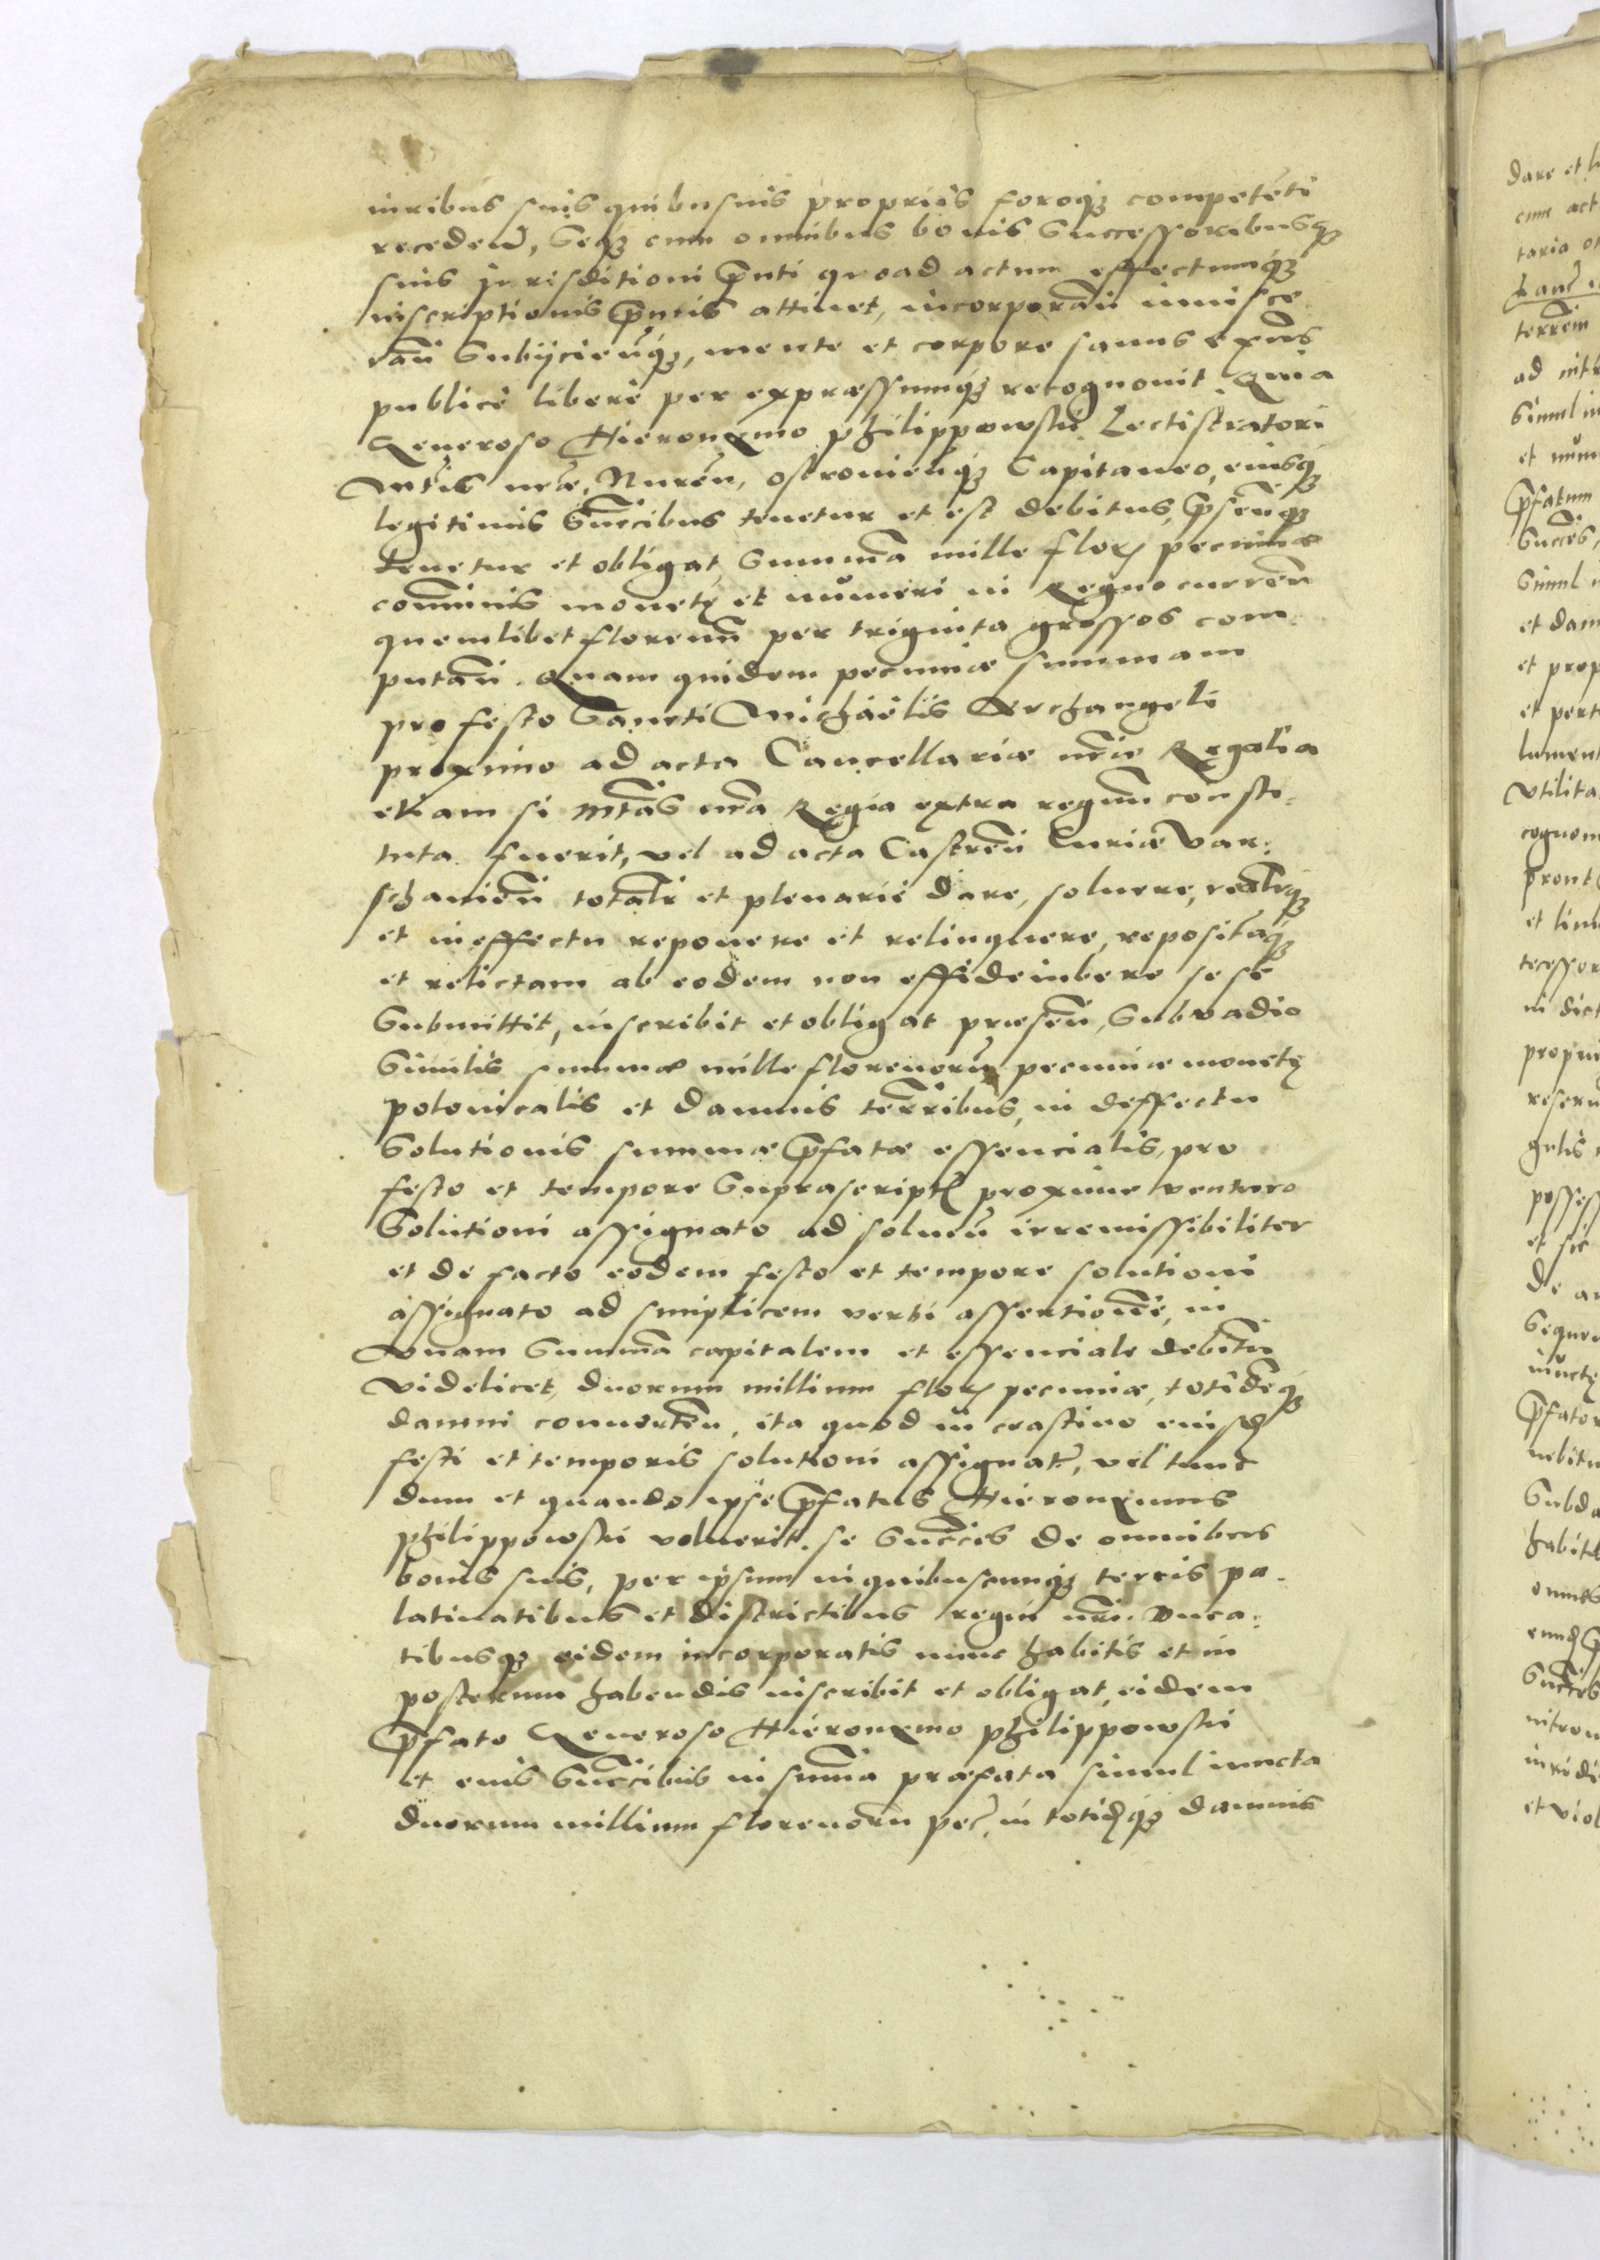 iuribus suis quibusuis propriis foroq; competēti
recedeñ, seq; cum omnibus bonis successoribusq;
suis jurisditioni pñti quoad actum effectumq;
inscriptionis pñtis attinet, incorporañ inuisce
rañ subijcieñq;, mente et corpore sanus exñs
publicè liberè per expraessumq; recognouit Quia
Generoso Hieronymo philippowski Lectistratori
Mtis nrae, Nureñ, ostronieñq; Capitaneo, eiusq;
legitimis succibus tenetur et est debitus, pseñq;
tenetur et obligat, summa mille flor pecuniae
cōmunis monetę et nŭmeri in Regno curreñ
quemlibet florenŭ per triginta grossos com
putañ. Quam quidem pecuniae summam
pro festo Sancti Michaelis Archangeli
proximo ad acta Cancellariae nrae Regalia
etiam si Mtas nra Regia extra regnum consti:
tuta fuerit, vel ad acta Castreñ Curiae Var:
schauieñ totalr et plenariè dare, soluere, realrq;
et in effectu reponere et relinquere, repositaq;
et relictam ab eodem non effideiubere se se
submittit, inscribit et obligat praeseñ, sub vadio
similis summae mille florenorŭ pecuniae monetę
polonicalis et damnis terribus, in deffectu
solutionis summae pfatae essencialis, pro
festo et tempore suprascript proxime venturo
solutioni assignato ad solueñ irremissibiliter
et de facto eodem festo et tempore solutioni
assignato ad simplicem verbi assertionē, in
Quam summa capitalem et essenciale debitŭ
videlicet, duorum millium flor pecuniae, totidēq;
damni conuerteñ, ita quod in crastino eiusd
festi et temporis solutioni assignat, vel tunc
dum et quando ipse pfatus Hieronymus
philippowski voluerit, se succes de omnibus
bonis suis, per ipsum in quibuscumq; terris pa:
latinatibus et districtibus regni nri. Duca:
tibusq; eidem incorporatis nunc habitis et in
posterum habendis inscribit et obligat, eidem
pfato Generoso Hieronymo philippowski
et eius succibus in summa praefata simul iuncta
duorum millium florenorŭ pec, in totidq; damnis